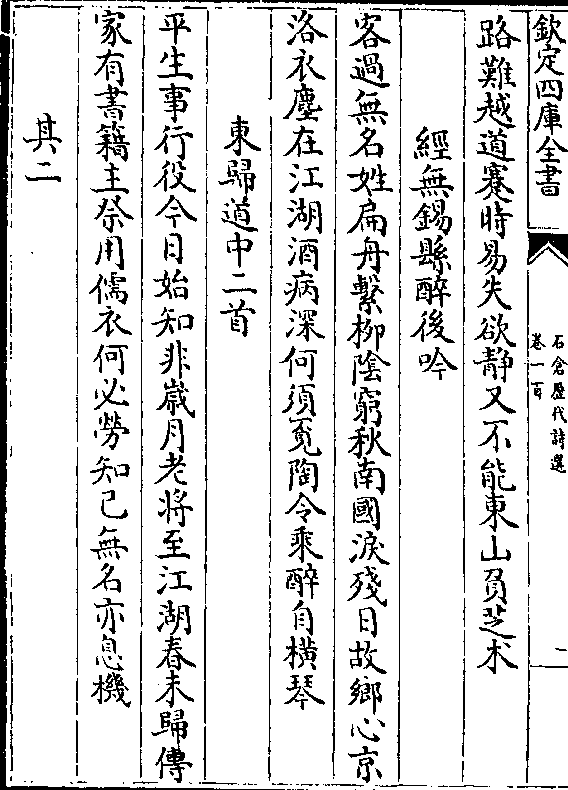 欽定四庫全書
石倉歷代詩選
卷一百
二
路難越道蹇時易失欲静又不能東山負芝术
經無錫縣醉後吟
客過無名姓扁舟繫柳陰窮秋南國淚殘日故鄉心京
洛衣塵在江湖酒病深何須覓陶令乘醉自橫琴
東歸道中二首
平生事行役今日始知非歲月老將至江湖春未歸傳
家有書籍主祭用儒衣何必勞知己無名亦息機
其二